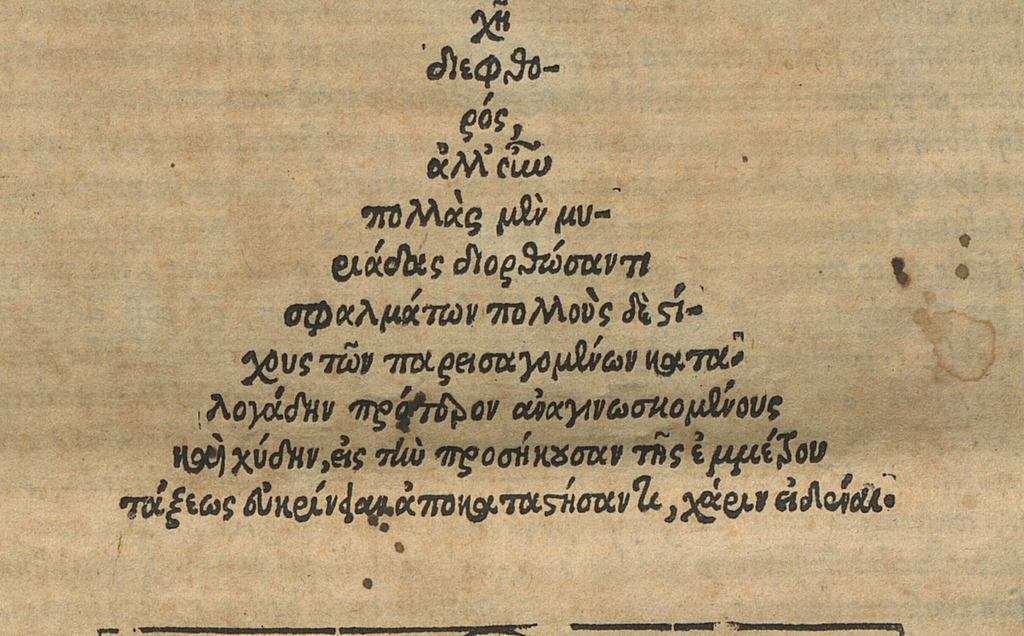 χῆ
διεφθο-
ρός,
ἀλλ' εἰκὼ
πολλὰς μὲν μυ-
ριάδας διορθώσαντι
σφαλμάτων πολλοὺς δὲ στί-
χους τῶν παρεισαγομένων κατα-
λογάδην πρότερον ἀναγινωσκομένους
καὶ χύδην, εἰς τὴν προσήκουσαν τῆς ἐμμέτρου
τάξεως εὐκρίνειαν ἀποκαταστήσαντι, χάριν εἰδέναι.